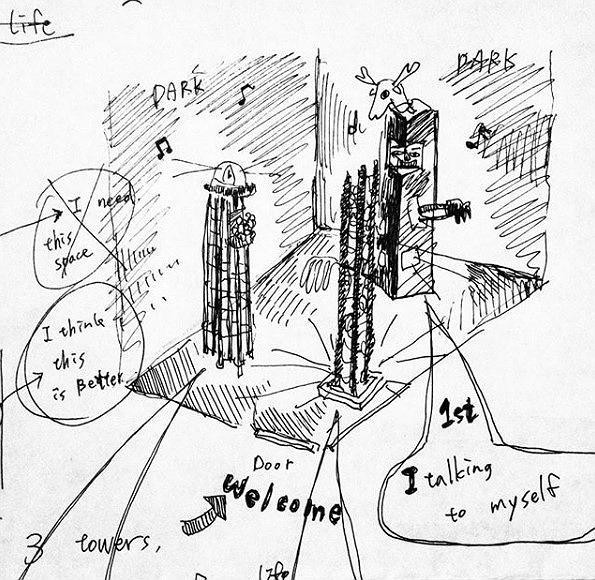 life
DARK
DARK
I need
this
space
I think
this
is Better
1st
I talking
to myself
Door
Welcome
3 towers,
life